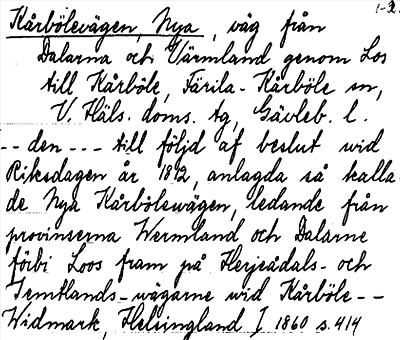 Kårbölevägen, Nya, väg från 1-2.
Dalarna och Värmland genom Los
till Kårböle, Färila-Kårböle sn,
V. Häls. doms. tg, Gävleb. l.
-- den --- till följd af beslut wid
Riksdagen år 1812, anlagda så kalla-
de Nya Kårbölewägen, ledande från
provinserna Wermland och Dalarne
förbi Loos fram på Herjeådals- och
Jemtlands-wägarne wid Kårböle --
Widmark, Helsingland I 1860 s. 414